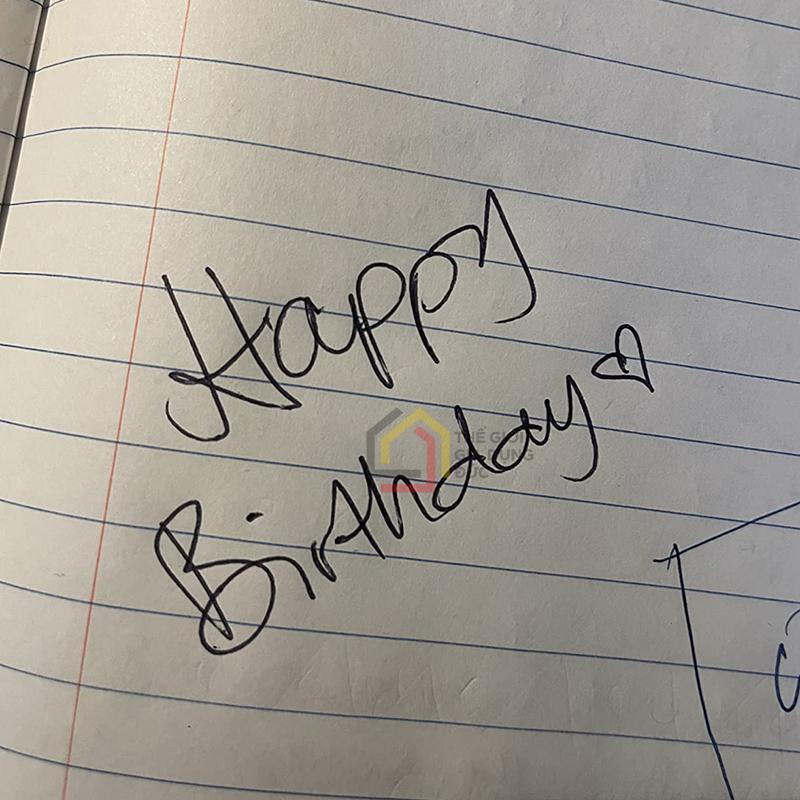 Happy
Birthday ♡
THẾ GIỚI
GIA DỤNG
ĐỨC